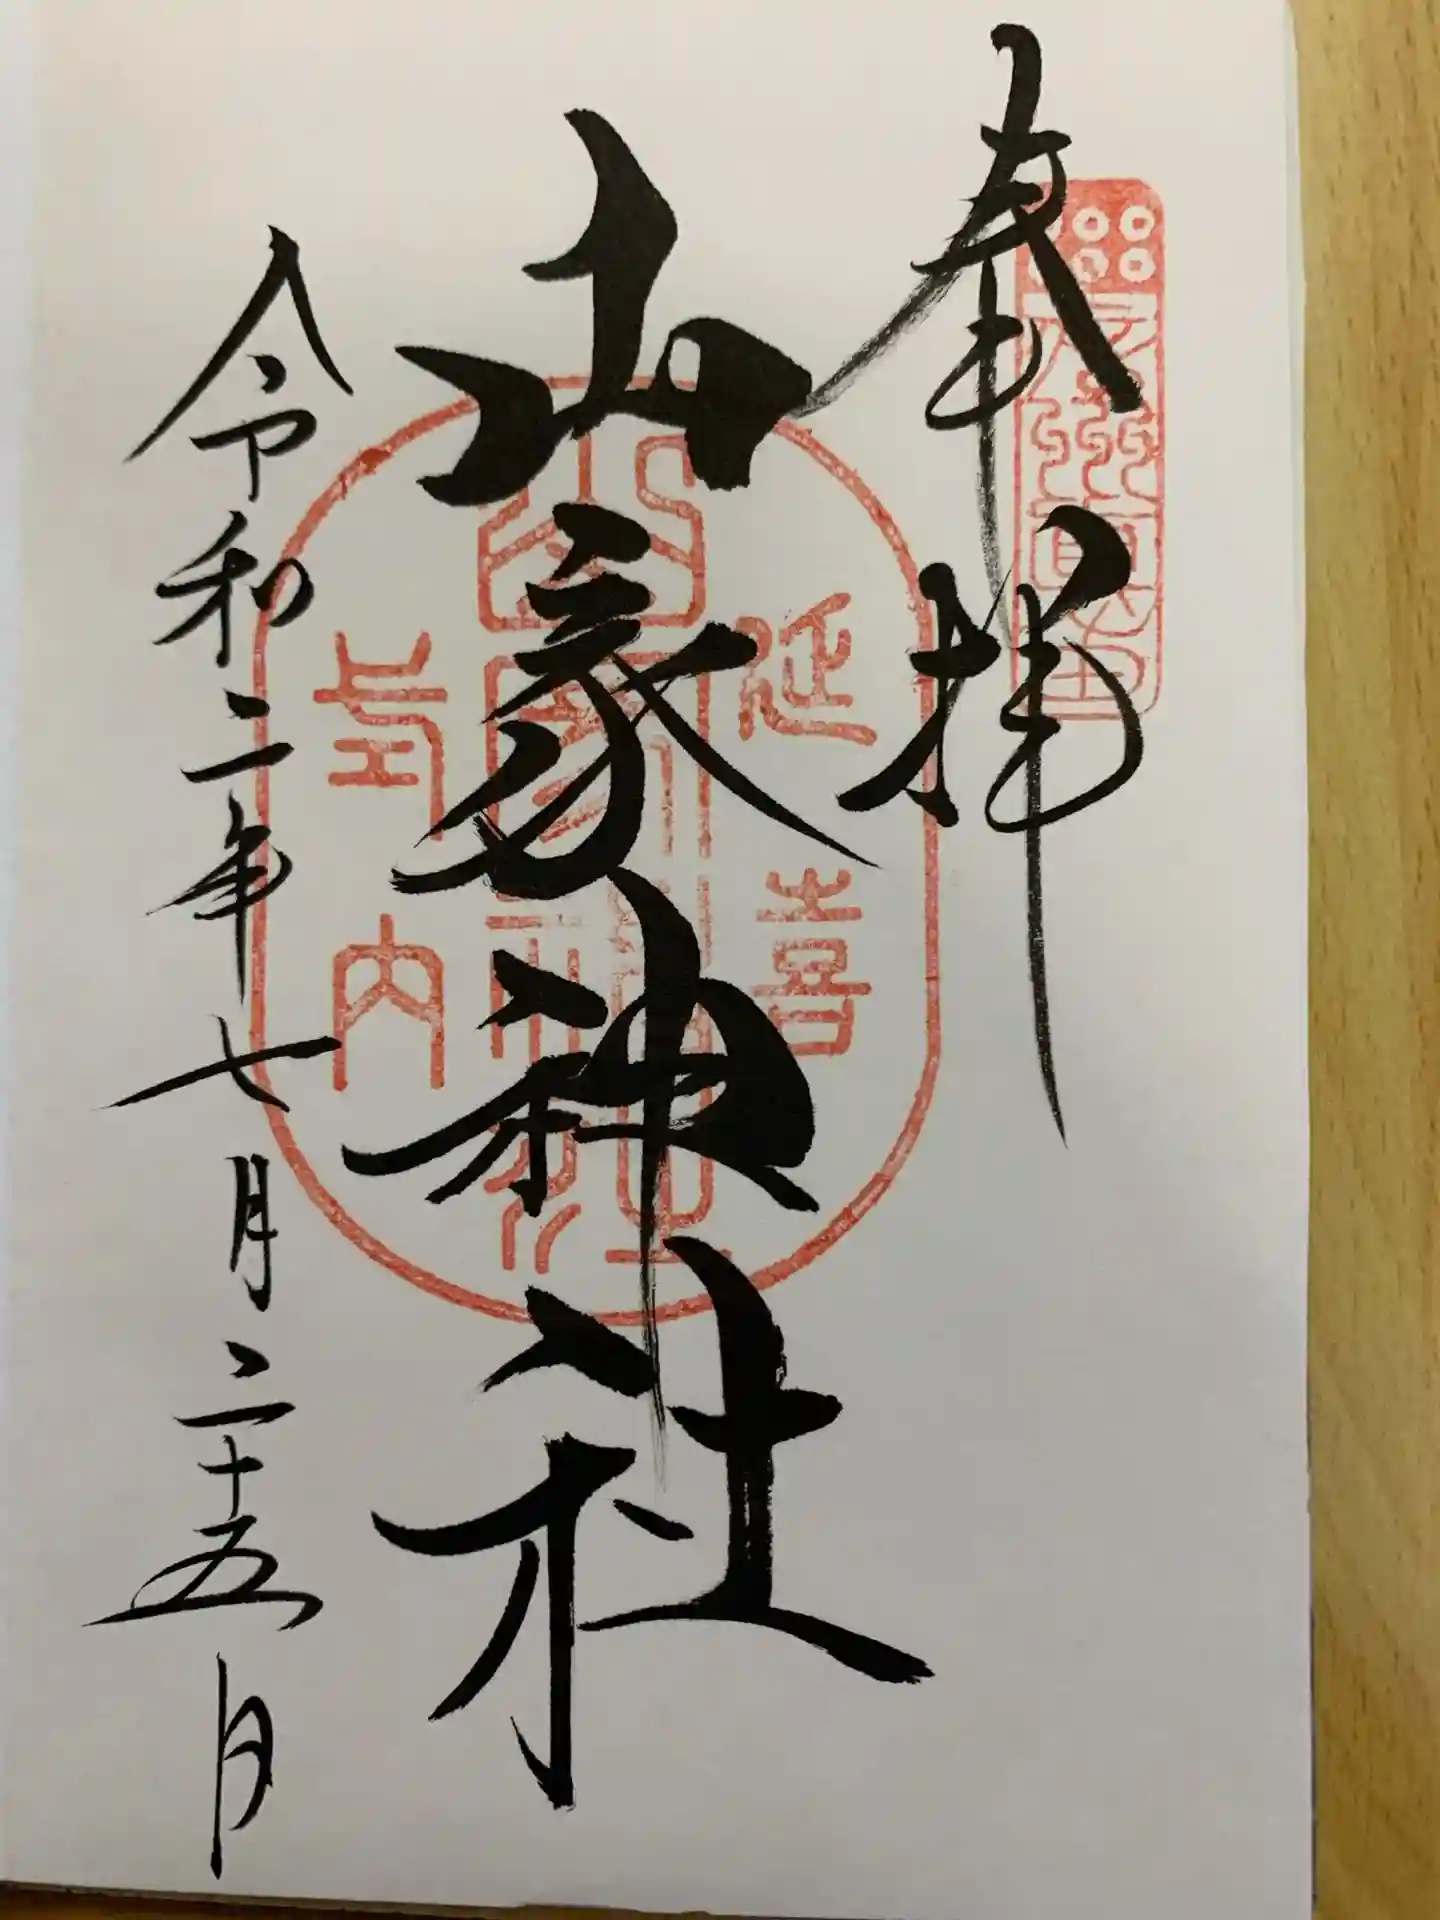 奉拝
山家神社
令和二年七月二十五日
延喜
式内
山家神社